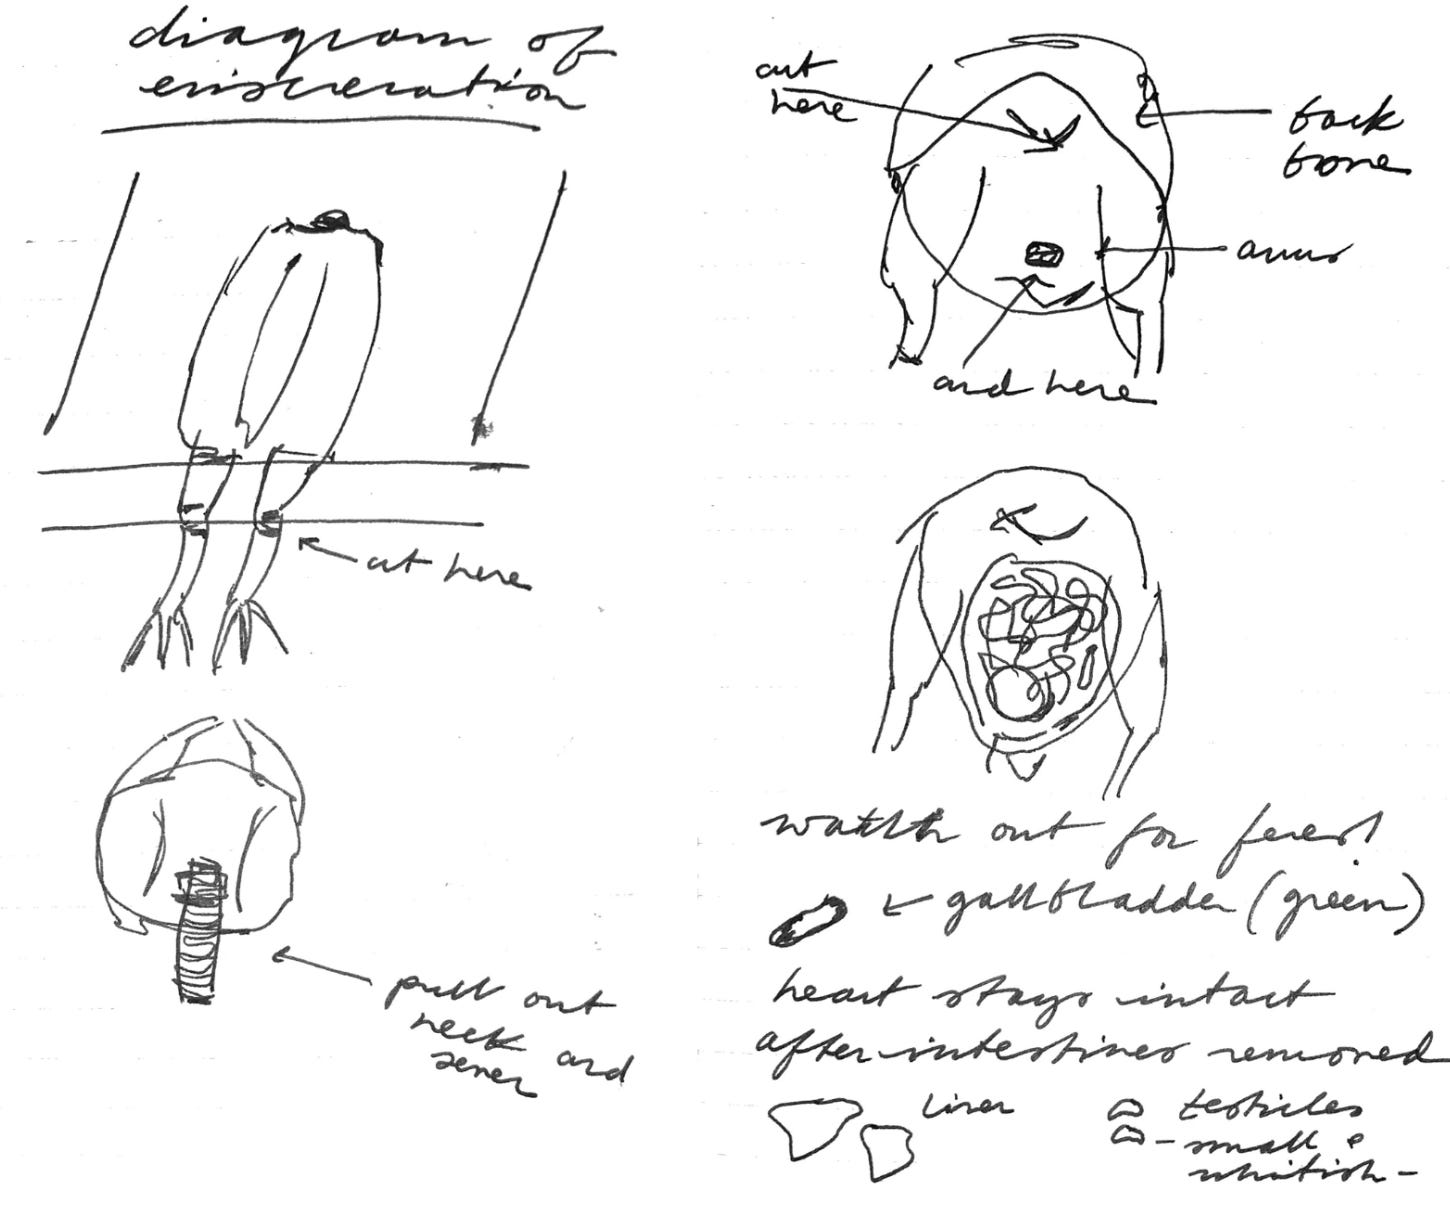 diagram of
evisceration
cut here
pull out
neck and
sever
cut
here
back
bone
anus
and here
watch out for
gallbladder (green)
heart stays intact
after intestines removed
liver
testicles
- small &
whitish -